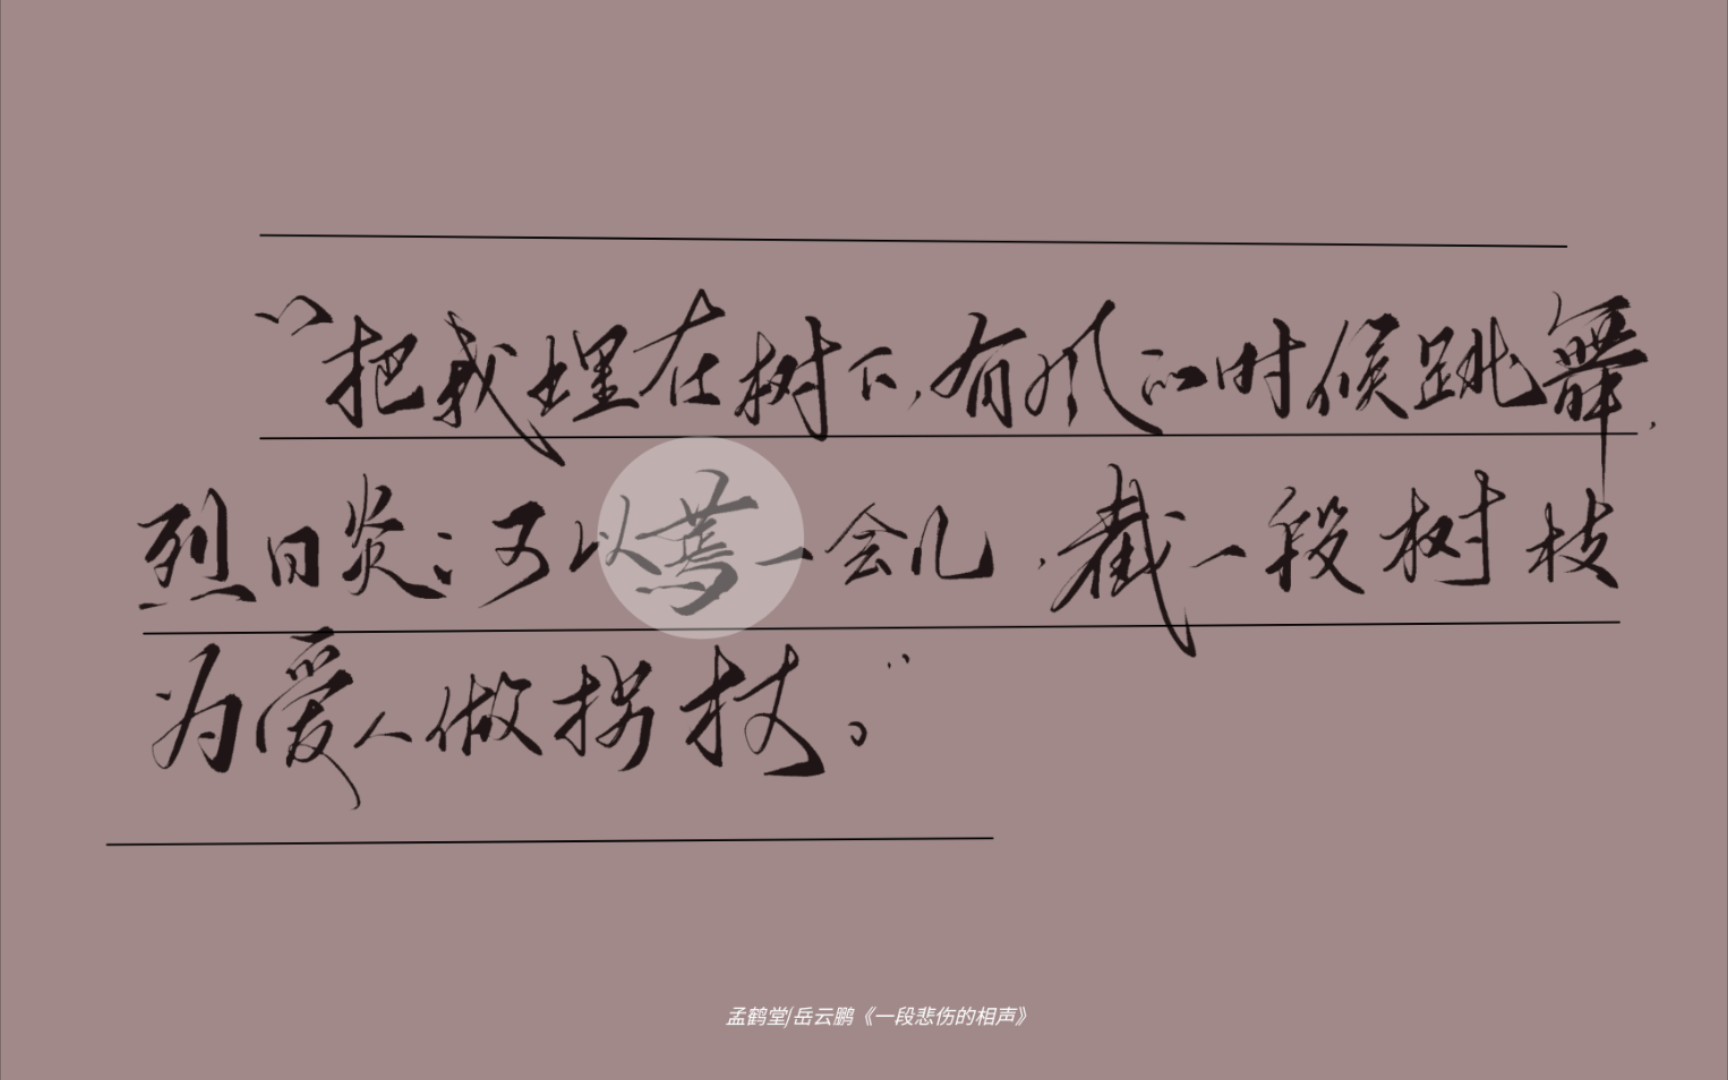 “把我埋在树下,有风的时候跳舞,
烈日炎炎可以蔫一会儿,截一段树枝
为爱人做拐杖。”
孟鹤堂/岳云鹏《一段悲伤的相声》